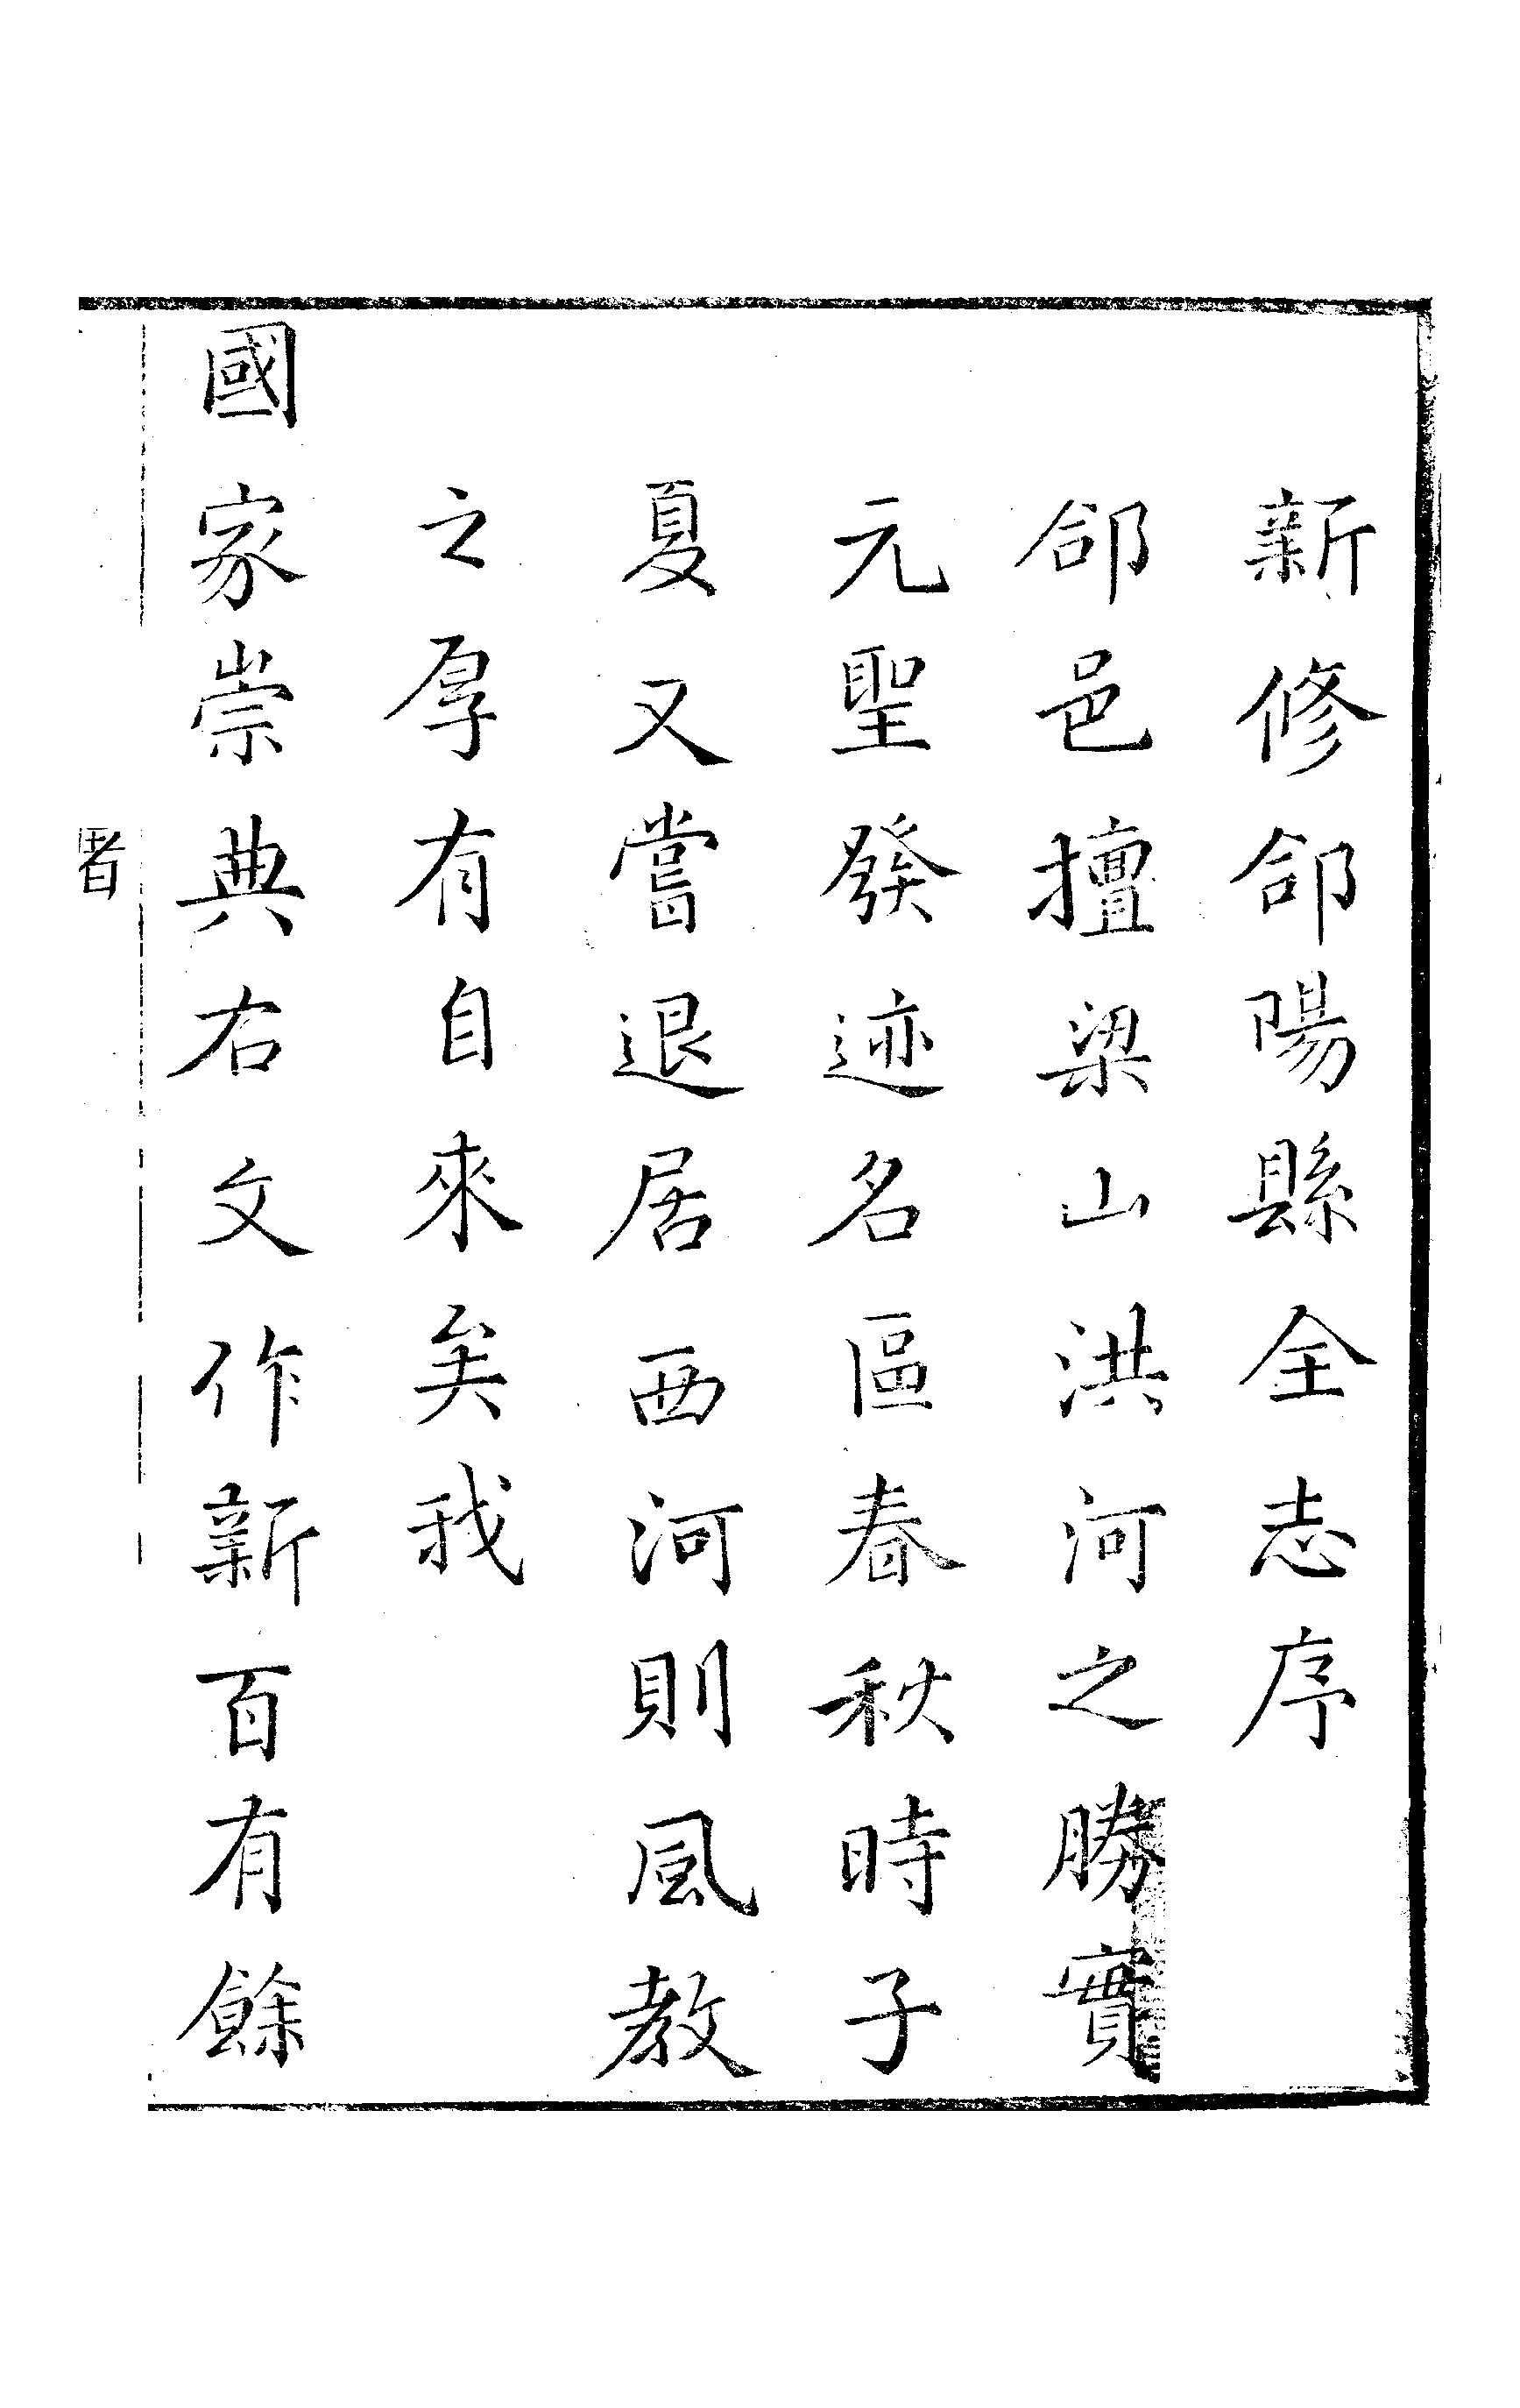 新修郃陽縣全志序
郃邑擅梁山洪河之勝實
元聖發迹名區春秋時子
夏又嘗退居西河則風教
之厚有自來矣我
國家崇典右文作新百有餘